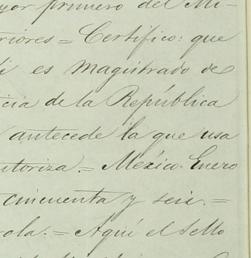 yor primero del Mi-
riores = Certifico: que
i es Magistrado de
icia de la República
antecede la que usa
utoriza. = México. Enero
cincuenta y seis. =
rola. = Aquí el Sello